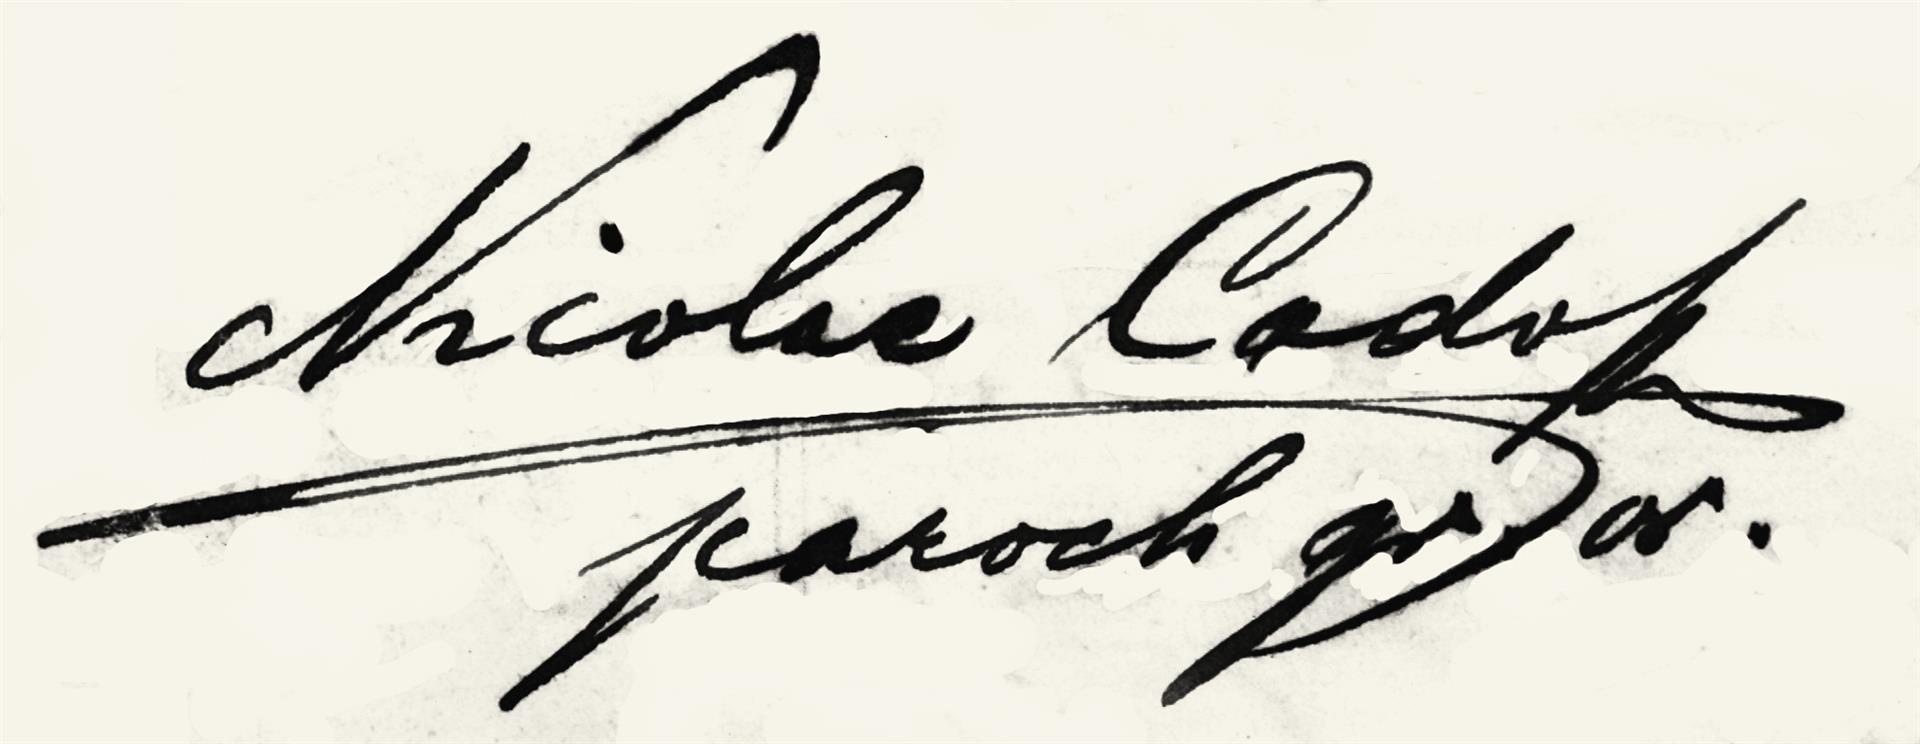 Nicolae
paroch gr or.